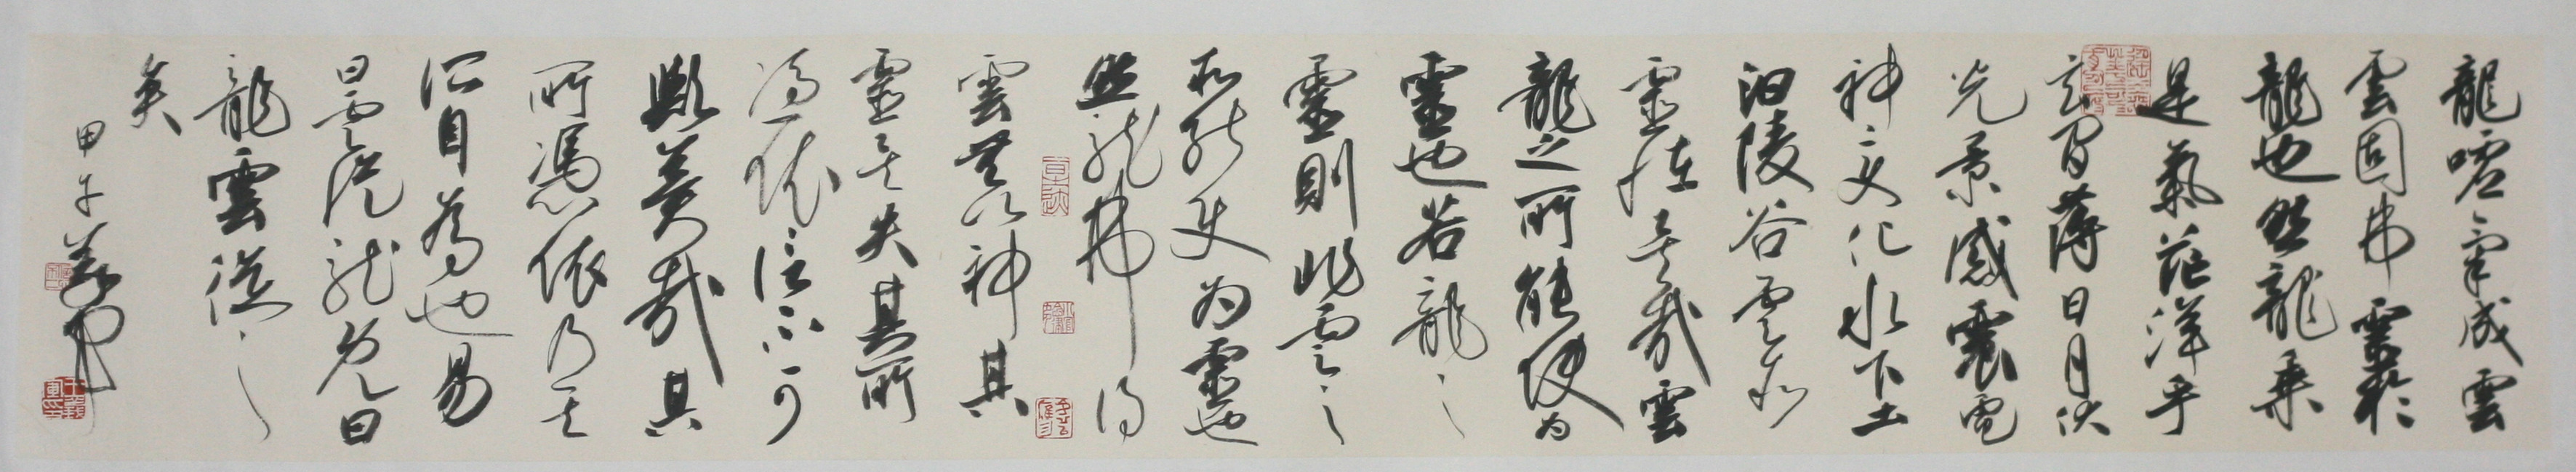 龍噓氣成雲
雲固弗靈於
龍也然龍乘
是氣茫洋乎
玄間薄日月伏
光景感震電
神變化水下土
汩陵谷雲亦
靈怪矣哉雲
龍之所能使為
靈也若龍之
靈則非雲之
所能使為靈也
然龍弗得
雲無以神其
靈矣失其所
憑依信不可
歟異哉其
所憑依乃其
所自為也易
曰雲從龍既曰
龍雲從之
矣
甲午義軍